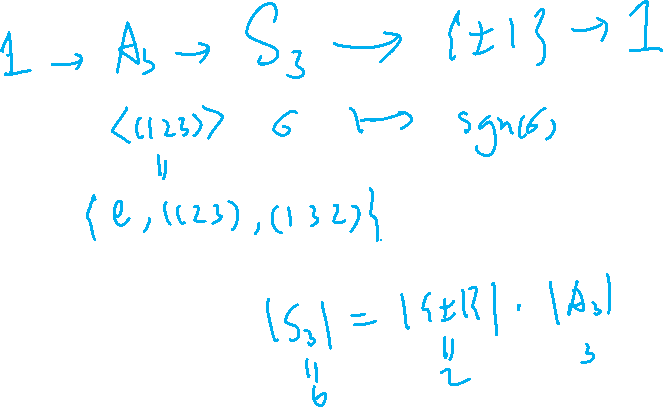 1 → A₃ → S₃ → {±1} → 1
<(123)> σ ↦ sgn(σ)
||
{e, (123), (132)}
|S₃| = |{±1}| · |A₃|
|| || 3
6 2